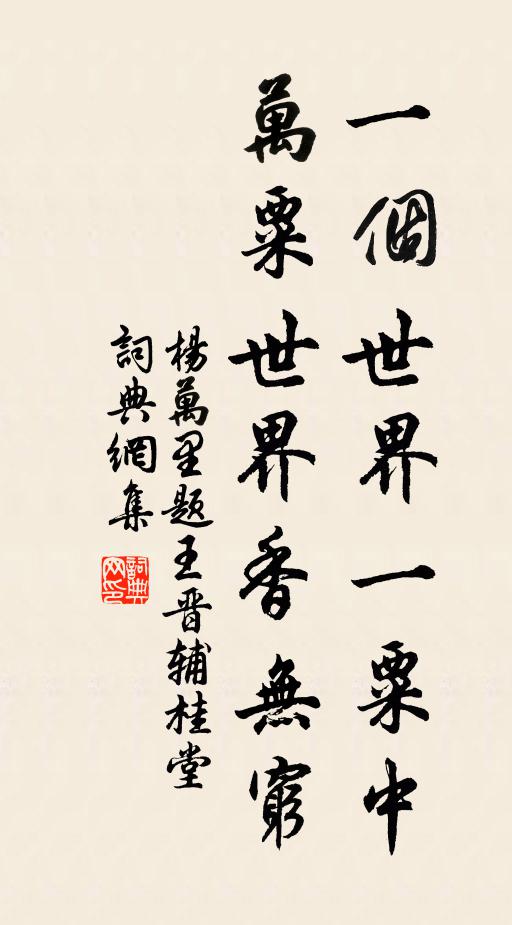 一個世界一粟中
萬粟世界香無窮
楊萬里题王晋辅桂堂
詞典網集
詞典网印